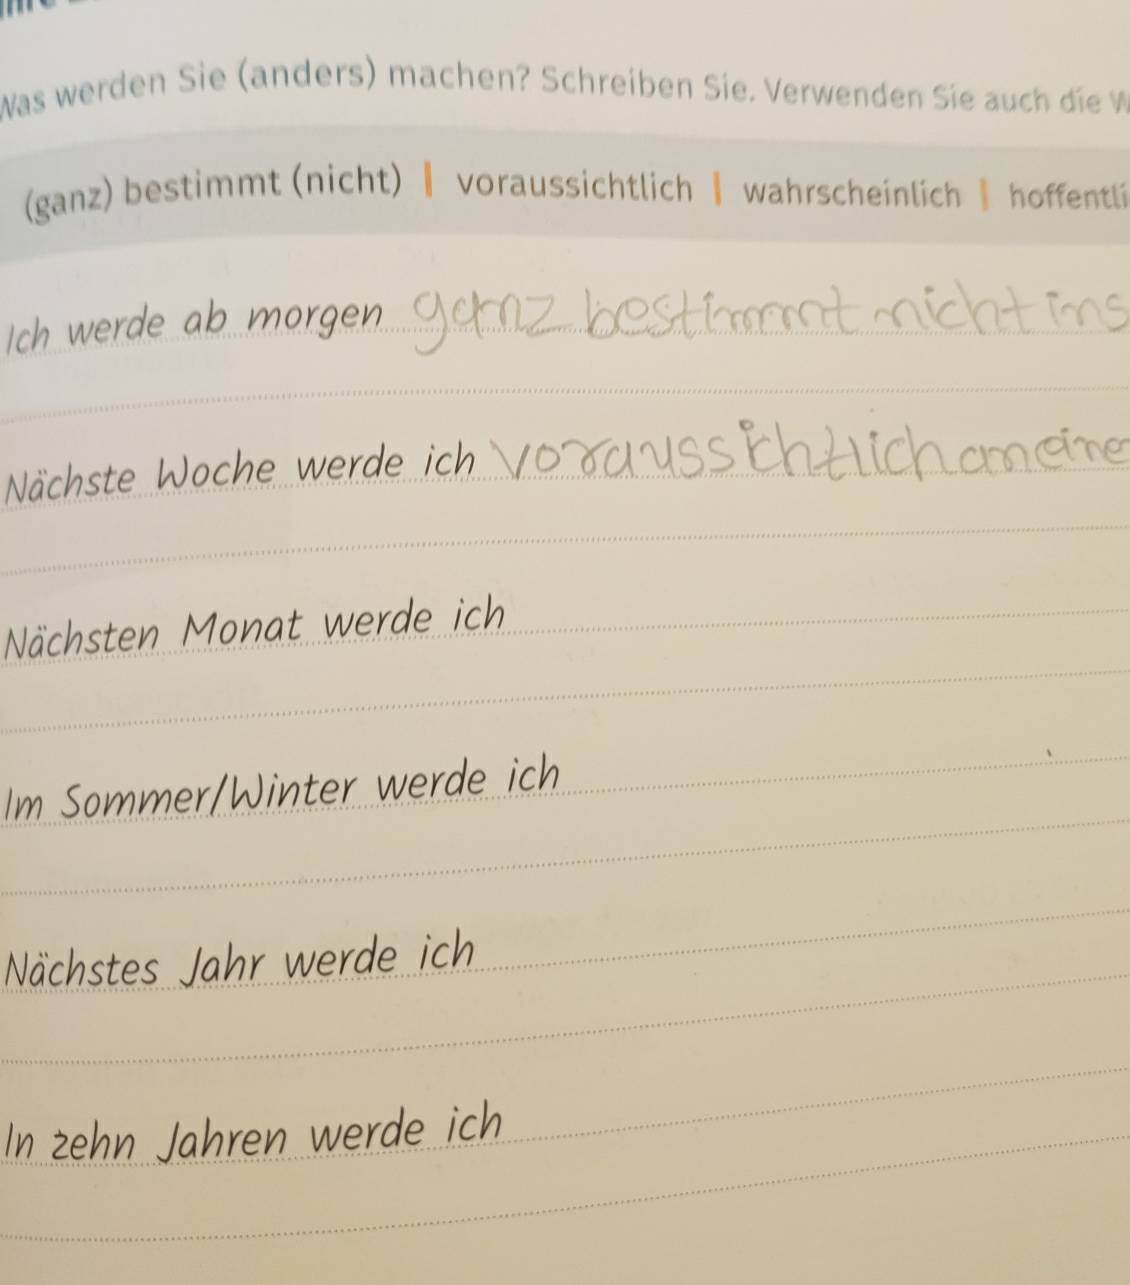 Was werden Sie (anders) machen? Schreiben Sie. Verwenden Sie auch die W
(ganz) bestimmt (nicht) | voraussichtlich | wahrscheinlich | hoffentli
Ich werde ab morgen ganz bestimmt nicht ins
Nächste Woche werde ich voraussichtlich am eine
Nächsten Monat werde ich
Im Sommer/Winter werde ich
Nächstes Jahr werde ich
In zehn Jahren werde ich